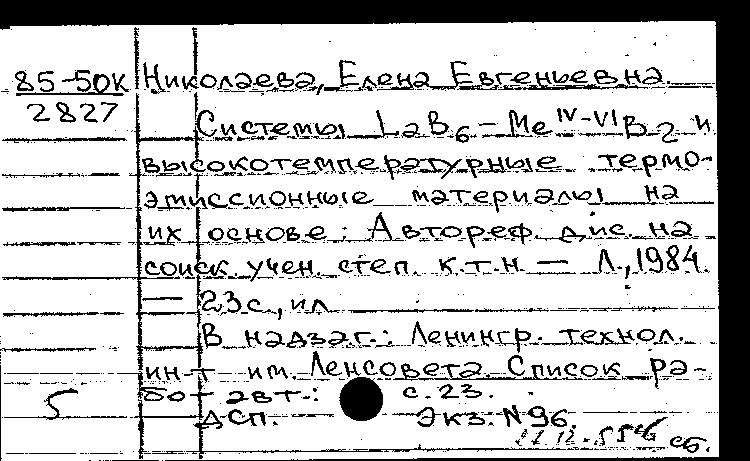 85-50К Николаева, Елена Евгеньевна.
2827
Системы LaB6 – MeIV-VIB2 и
высокотемпературные термо-
эмиссионные материалы на
их основе: Автореф. дис. на
соиск. учен. степ. к.т.н. — Л., 1984.
— 23с., ил
В надзаг.: Ленингр. технол.
ин-т им. Ленсовета. Список ра-
бот авт.: с. 23.
5
ДСП. Экз. N96.
сб.